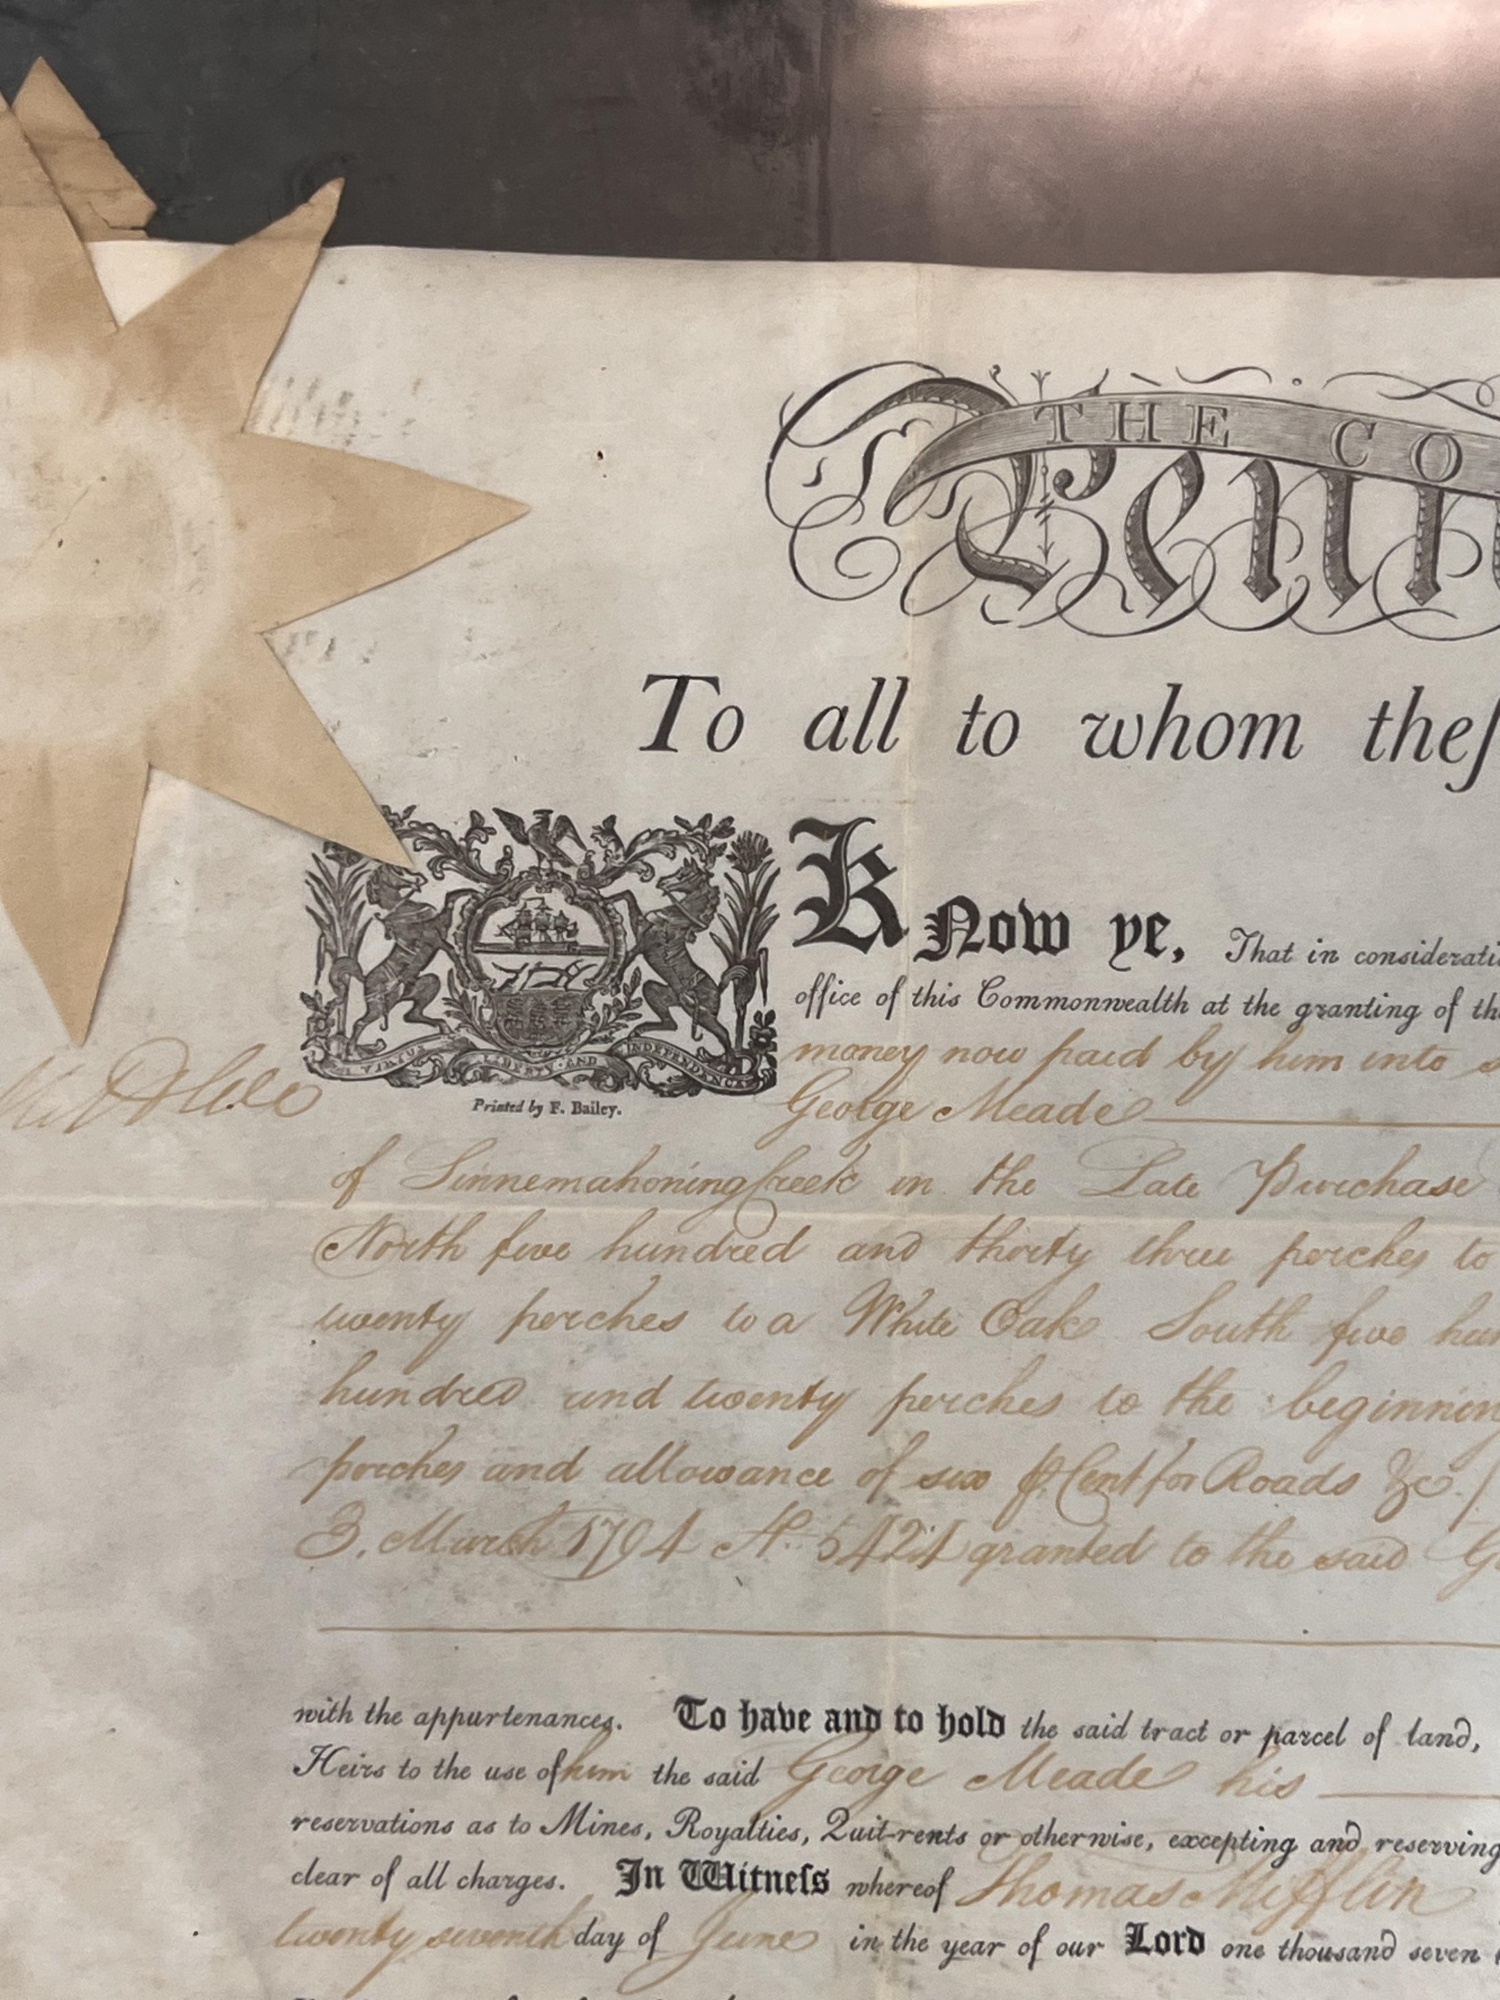 THE CO
Penn
To all to whom theſ
Know ye, That in considerati
office of this Commonwealth at the granting of th
money now paid by him into s
VIRTUE LIBERTY AND INDEPENDANCE
Printed by F. Bailey.
George Meade
of Sinnemahoning Creek in the Late Purchase
North five hundred and thirty three perches to
twenty perches to a White Oak South five hun
hundred and twenty perches to the beginnin
perches and allowance of six ⅌. Cent for Roads &c. /
3. March 1794 N.. 5424 granted to the said G
with the appurtenances. To have and to hold the said tract or parcel of land,
Heirs to the use of him the said George Meade his
reservations as to Mines, Royalties, Quit-rents or otherwise, excepting and reserving
clear of all charges. In Witneſs whereof Thomas Mifflin
twenty seventh day of June in the year of our Lord one thousand seven